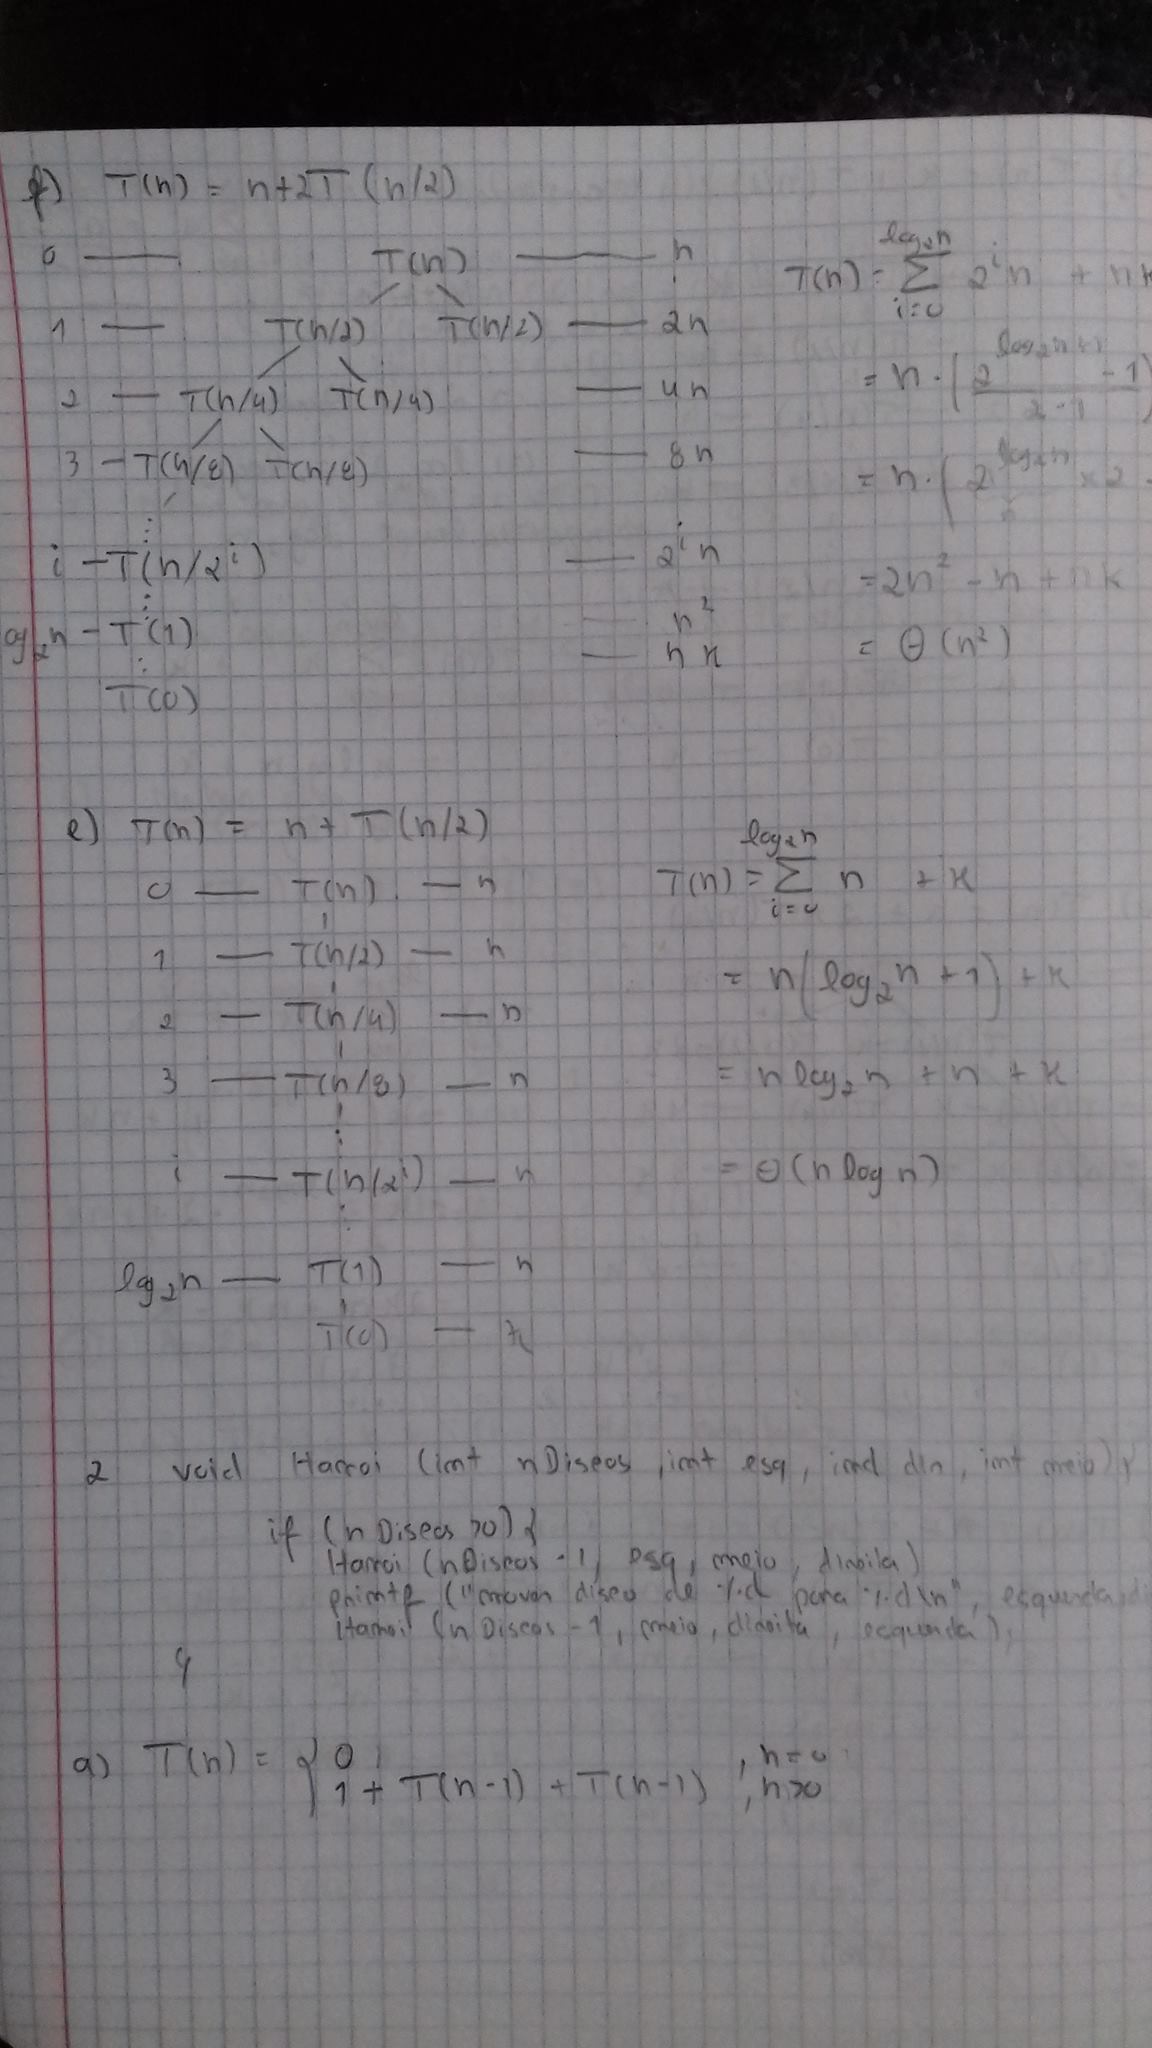 f) T(n) = n+2T (n/2)
0 — T(n) — n
1 — T(n/2) T(n/2) — 2n
2 — T(n/4) T(n/4) — 4n
3 — T(n/8) T(n/8) — 8n
⋮
i — T(n/2^i) — 2^i n
⋮
log₂n — T(1) — n²
⋮ — n k
T(0)
T(n) = Σ_{i=0}^{log₂n} 2^i n + nk
= n · (2^{log₂n+1} - 1 / 2-1)
= n · (2^{log₂n} × 2 -
= 2n² - n + nk
= Θ (n²)
e) T(n) = n + T(n/2)
0 — T(n) — n
1 — T(n/2) — n
2 — T(n/4) — n
3 — T(n/8) — n
⋮
i — T(n/2^i) — n
⋮
log₂n — T(1) — n
T(0) — k
T(n) = Σ_{i=0}^{log₂n} n + k
= n(log₂n + 1) + k
= n log₂n + n + k
= Θ(n log n)
2 void Hanoi (int nDiscos, int esq, int dir, int meio) {
if (nDiscos >0) {
Hanoi (nDiscos -1, esq, meio, direita)
printf ("mover disco de %d para %d\n", esquerda, di
Hanoi (nDiscos -1, meio, direita, esquerda);
}
a) T(n) = { 0 , n=0
1 + T(n-1) + T(n-1) , n>0